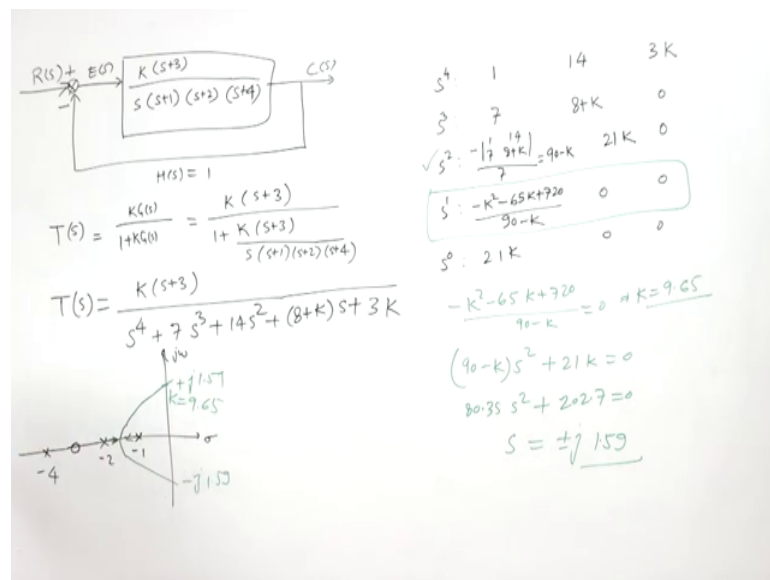 R(s) + E(s) K(s+3) C(s)
s(s+1)(s+2)(s+4)
−
H(s) = 1
T(s) = KG(s) / 1+KG(s) = K(s+3) / 1 + K(s+3) / s(s+1)(s+2)(s+4)
T(s) = K(s+3) / s⁴ + 7s³ + 14s² + (8+K)s + 3K
jω
+j1.59
K=9.65
σ
-4 -2 -1
-j1.59
s⁴ 1 14 3K
s³ 7 8+K 0
✓ s² : -|1 14 7 8+K| / 7 = 90-K 21K 0
s¹ : -K²-65K+720 / 90-K 0 0
s⁰ : 21K 0 0
-K²-65K+720 / 90-K = 0 ⇒ K=9.65
(90-K)s² + 21K = 0
80.35 s² + 202.7 = 0
s = ±j 1.59